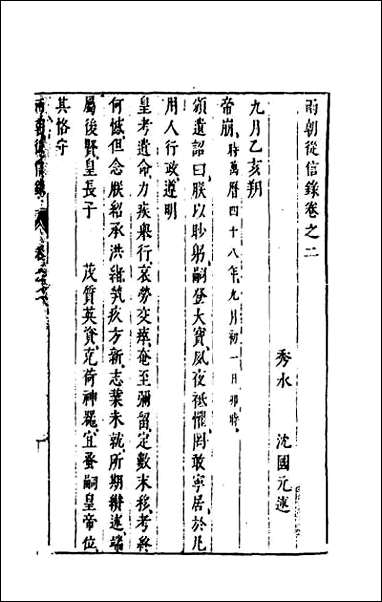 兩朝從信錄卷之二
秀水 沈國元述
九月乙亥朔
帝崩時萬曆四十八年九月初一日卯時
頒遺詔曰朕以眇躬嗣登大寶夙夜祗懼罔敢寧居於凡
用人行政遵明
皇考遺命力疾舉行哀勞交瘁奄至彌留定數末移考終
何憾但念朕紹承洪緒疚方新志葉未就所期繼述端
屬後賢皇長子 茂質英資克荷神器宜蚤嗣皇帝位
其恪守
兩朝從信錄